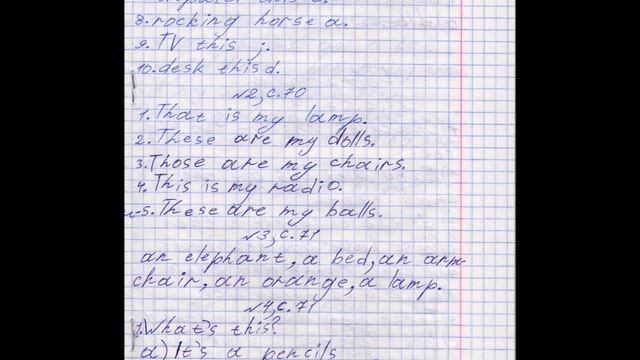 8. rocking horse a.
9. TV this j.
10. desk this d.
№2, с.70
1. That is my lamp.
2. These are my dolls.
3. Those are my chairs.
4. This is my radio.
5. These are my balls.
№3, с.71
an elephant, a bed, an arm-
chair, an orange, a lamp.
№4, с.71
1. What's this?
a) It's a pencils